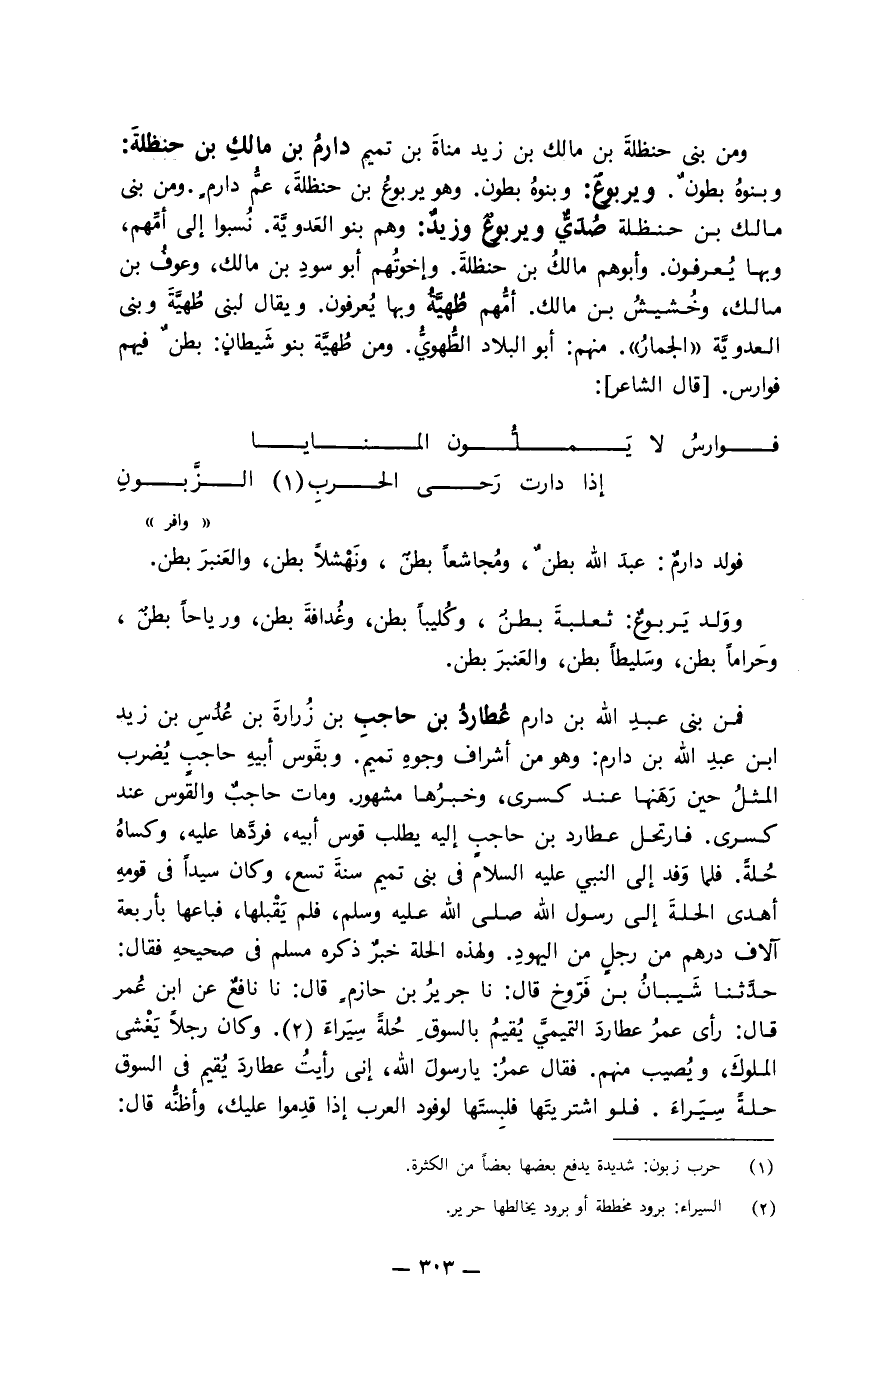 ومن بنى حنظلةَ بن مالك بن زيد مناةَ بن تميم دارمُ بن مالكِ بن حنظلةَ:
وبنوهُ بطونٌ. ويربوعٌ: وبنوهُ بطون. وهو يربوعُ بن حنظلةَ، عمُّ دارمٍ. ومن بنى
مالك بن حنظلة صُدَيٌّ ويربوعٌ وزيدٌ: وهم بنو العَدويَّة. نُسبوا إلى أمِّهم،
وبها يُعرفون. وأبوهم مالكُ بن حنظلةَ. وإخوتُهم أبو سودِ بن مالك، وعوفُ بن
مالك، وخُشيشُ بن مالك. أمُّهم طُهيَّةُ وبها يُعرفون. ويقال لبنى طُهيَّةَ وبنى
العدويَّة «الجمارُ». منهم: أبو البلاد الطُّهويُّ. ومن طُهيَّة بنو شَيطانٍ: بطنٌ فيهم
فوارس. [قال الشاعر]:
فوارسُ لا يَملُّون المنايا
إذا دارت رَحى الحربِ (١) الزَّبونِ
« وافر »
فولد دارمٌ: عبدَ الله بطنٌ، ومُجاشعاً بطنٌ ، ونَهْشلاً بطن، والعَنبرَ بطن.
ووَلد يَربوعٌ: ثعلبةَ بطنٌ ، وكُليباً بطن، وغُدافةَ بطن، ورياحاً بطنٌ ،
وحَراماً بطن، وسَليطاً بطن، والعَنبرَ بطن.
فمن بنى عبدِ الله بن دارم عُطاردُ بن حاجبِ بن زُرارةَ بن عُدُسِ بن زيد
ابن عبدِ الله بن دارم: وهو من أشراف وجوهِ تميم. وبقَوس أبيهِ حاجبٍ يُضرب
المثلُ حين رَهَنها عند كسرى، وخبرُها مشهور. ومات حاجبٌ والقَوس عند
كسرى. فارتحل عطارد بن حاجبٍ إليه يطلب قوس أبيه، فردَّها عليه، وكساهُ
حُلةً. فلما وَفد إلى النبي عليه السلام فى بنى تميم سنةَ تسع، وكان سيداً فى قومهِ
أهدى الحلةَ إلى رسول الله صلى الله عليه وسلم، فلم يَقْبلها، فباعها بأربعة
آلاف درهم من رجلٍ من اليهودِ. ولهذه الحلة خبرٌ ذكره مسلم فى صحيحهِ فقال:
حدَّثنا شَيبانُ بن فَرّوخ قال: نا جريرُ بن حازمٍ قال: نا نافعٌ عن ابن عُمر
قال: رأى عمرُ عطاردَ التميميَّ يُقيمُ بالسوقِ حُلةً سِيَراءَ (٢). وكان رجلاً يَغْشى
الملوكَ، ويُصيب منهم. فقال عمرُ: يارسولَ الله، إنى رأيتُ عطاردَ يُقيم فى السوق
حلةً سِيَراءَ . فلو اشتريتَها فلبِستَها لوفود العرب إذا قدِموا عليك، وأظنُّه قال:
(١) حرب زبون: شديدة يدفع بعضها بعضاً من الكثرة.
(٢) السيراء: برود مخططة أو برود يخالطها حرير.
— ٣٠٣ —